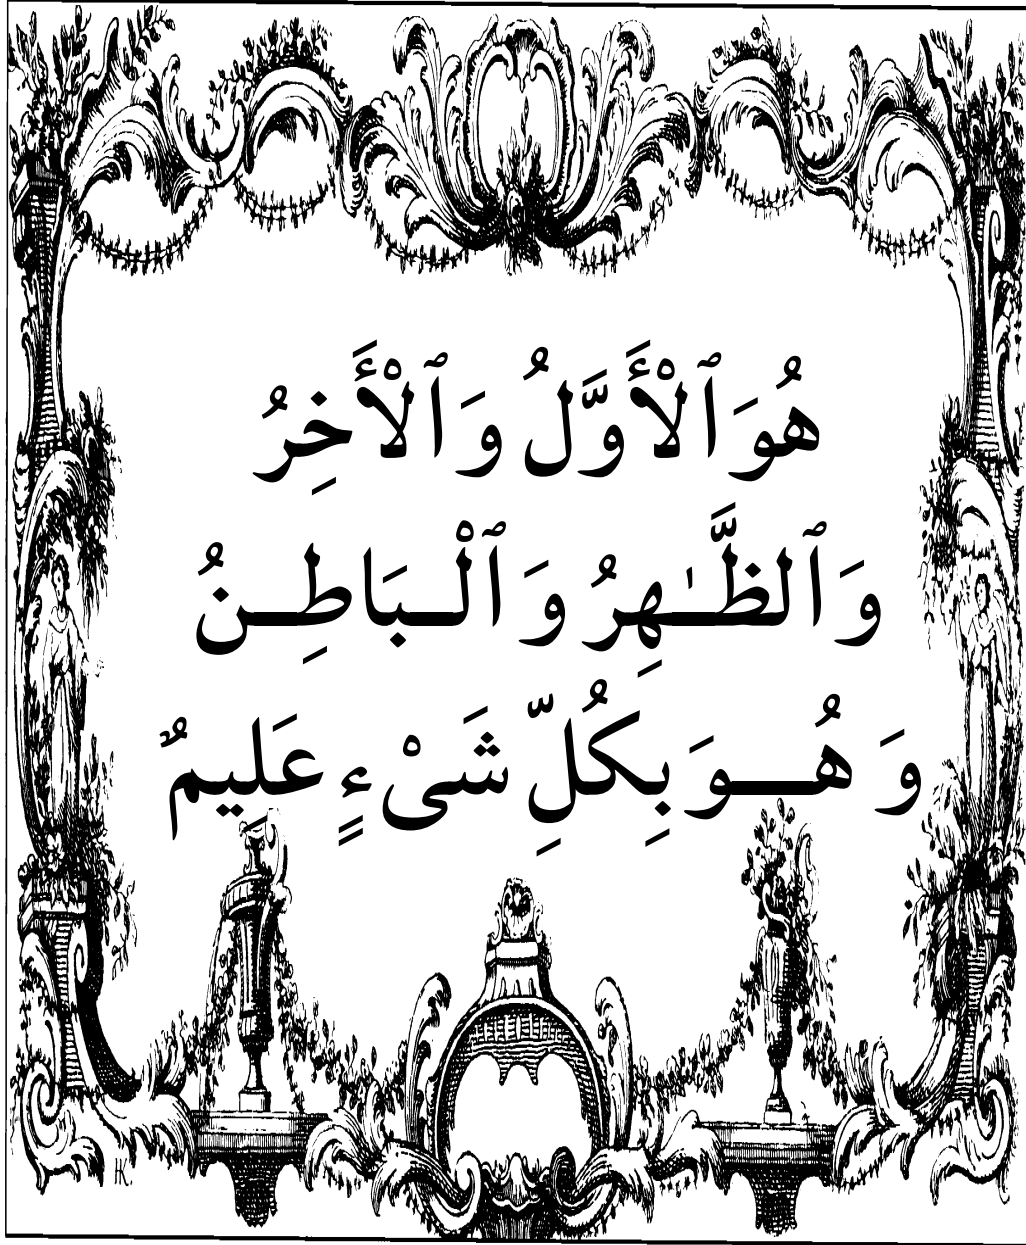 هُوَ ٱلْأَوَّلُ وَٱلْأَخِرُ
وَٱلظَّـٰـهِرُ وَٱلْـبَاطِـنُ
وَ هُـــوَ بِكُلِّ شَىْءٍ عَلِيمٌ
HK.